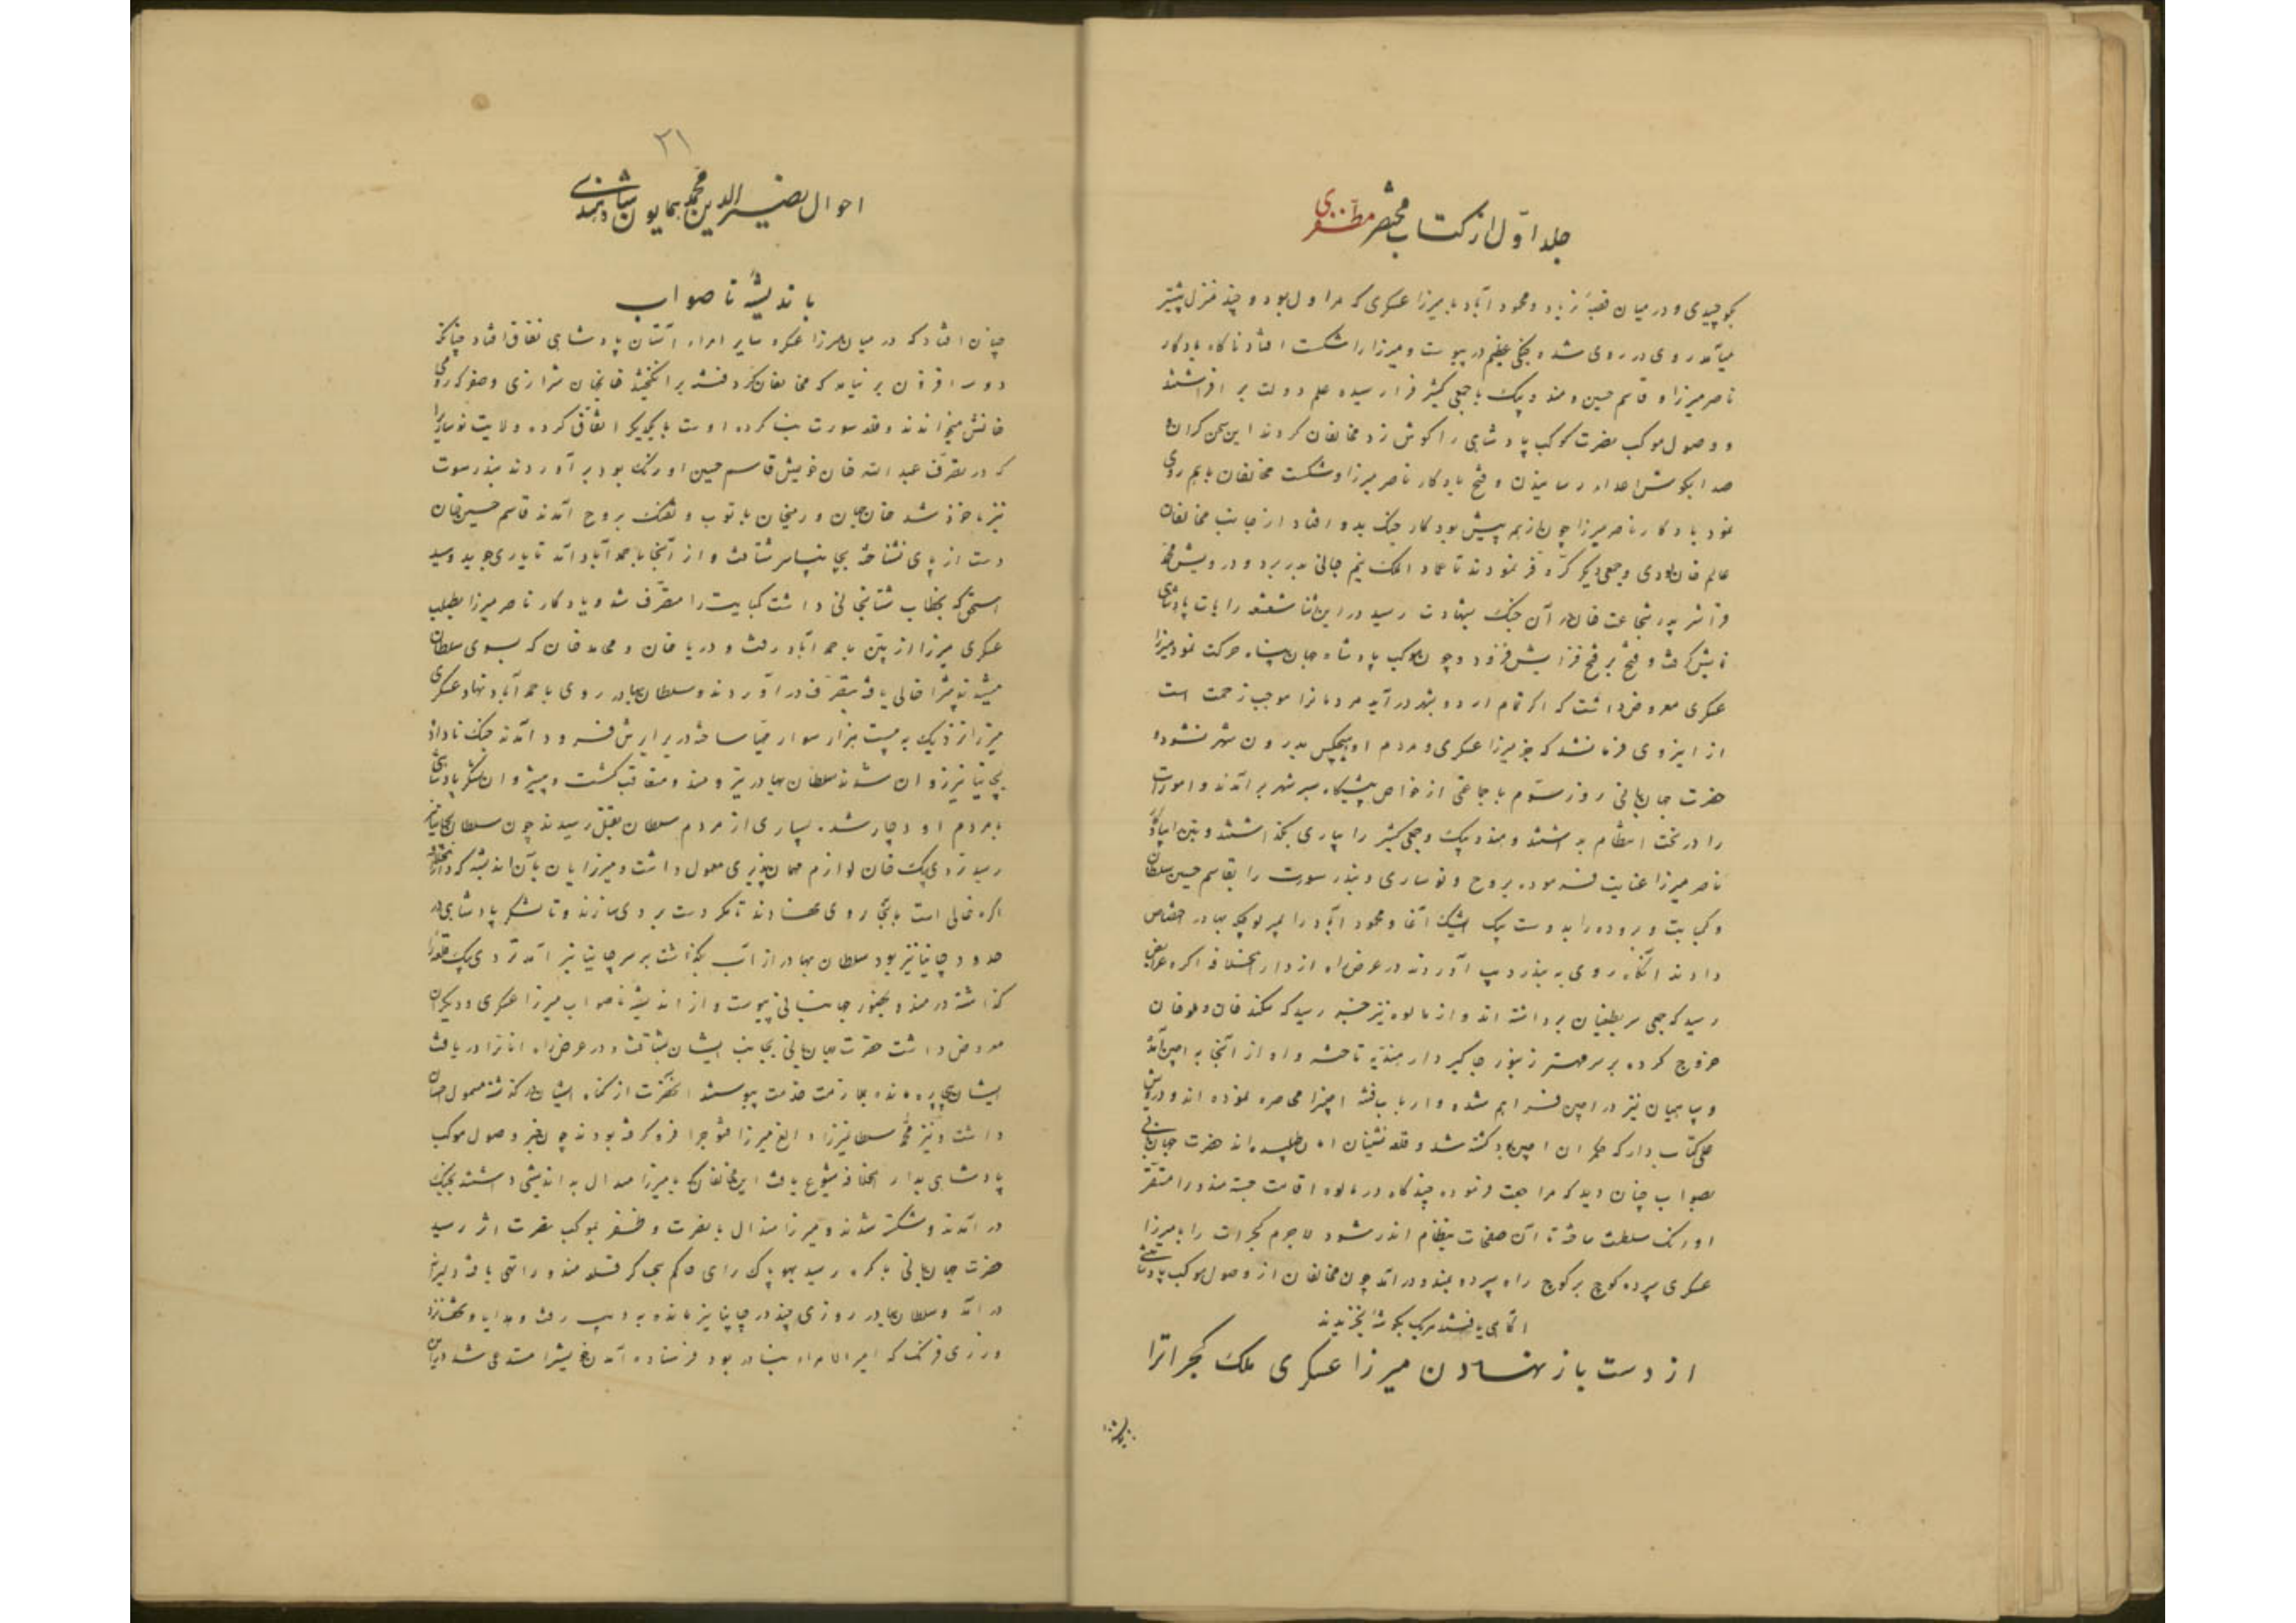 جلد اوّل از کتاب مختصر مظفّری
بکوچیدی و در میان قصبهٔ نریاد و محمود آباد با میرزا عسکری که هراول بود و چند منزل پیشتر
میآمد روی در روی شده جنگی عظیم در پیوست و میرزا را شکست افتاد ناگاه یادگار
ناصر میرزا و قاسم حسین و هندو بیک با جمعی کثیر فرا رسیده علم دولت بر افراشتند
و وصول موکب نصرت کوکب پادشاهی را گوش زد مخالفان کردند این سخن گران
صدا بگوش اعداء رسانیدن و فتح یادگار ناصر میرزا و شکست مخالفان باهم روی
نمود یادگار ناصر میرزا چون از همه پیش بود کار جنگ بدو افتاد از جانب مخالفان
عالم خان لودی و جمعی دیگر کرّ و فر نمودند تا عماد الملک نیم جانی بدر برد و درویش محمد
قرا شیر پدر شجاعت خان در آن جنگ بشهادت رسید در این اثنا شعشعه رایات پادشاهی
تابش گرفت و فتح بر فتح فزایش فزود و چون موکب پادشاه جهان پناه حرکت نمود میرزا
عسکری معروض داشت که اگر تمام اردو بشهر در آید مردمانرا موجب زحمت است
از اینروی فرمانشد که جز میرزا عسکری و مردم او هیچکس بدرون شهر نشود و
حضرت جهانبانی روز سوّم با جماعتی از خواص پیشگاه بسیر شهر بر آمدند و امورات
را در تحت انتظام بداشتند و هندو بیک و جمعی کثیر را بیاری بگذاشتند و پتن را بیادگار
ناصر میرزا عنایت فرموده بروج و نوساری و بندر سورت را بقاسم حسین سلطان
و کمبایت و بروده را بدوست بیک ایشیک آغا و محمود آباد را بمیر بوچکه بهادر اختصاص
دادند آنگاه روی به بندر دیب آوردند در عرض راه از دار الخلافه اگره عرایض
رسید که جمعی سر بطغیان برداشته اند و از مالوه نیز خبر رسید که سکندر خان و ملو خان
خروج کرده بر سر مهتر زنبور جاگیر دار هندیه تاخته و او از آنجا به اجین آمد
و سپاهیان نیز در اجین فراهم شده و ارباب فتنه اجین را محاصره نموده اند و درویش
علی کتاب دار که حکمران اجین بود کشته شد و قلعه نشینان امان طلبیده اند حضرت جهانبانی
بصواب چنان دید که مراجعت فرموده چندگاه در مالوه اقامت جسته مندو را مستقر
اورنگ سلطنت ساخته تا آن صفحات بنظام اندر شود لاجرم گجرات را با میرزا
عسکری سپرده کوچ بر کوچ راه سپرده بمندو در آمد چون مخالفان از وصول موکب پادشاهی
آگاهی یافتند هریک بگوشه بخزیدند
از دست باز نهادن میرزا عسکری ملک گجراترا
۲۱
احوال نصیر الدین محمد همایون پادشاه
باندیشه نا صواب
چنان افتاد که در میان میرزا عسکری و سایر امراء آستان پادشاهی نفاق افتاد چنانکه
دو سه افزون بر نیامد که مخالفان گرد فتنه بر انگیختند خانجهان شیرازی و صفر که رومی
خانش میخواندند و قلعه سورت بنا کرده اوست با یکدیگر اتفاق کرده ولایت نوساری را
که در تصرّف عبد الله خان خویش قاسم حسین اوزبک بود بر آوردند بندر سوت
نیز ماخوذ شد خانجهان و رومیخان با توپ و تفنگ بروج آمدند قاسم حسین خان
دست از پای نشناخته بچانپانیر شتافت و از آنجا باحمد آباد آمد تا یاری جوید و سید
اسحق که بخطاب شتابخانی داشت کمبایت را متصرّف شد و یادگار ناصر میرزا بطلب
عسکری میرزا از پتن باحمد آباد رفت و دریا خان و محافظ خان که بسوی سلطان
میشدند پتن را خالی یافته بتصرّف در آوردند و سلطان بهادر روی باحمد آباد نهاد عسکری
میرزا نزدیک به بیست هزار سوار مهیا ساخته در برابرش فرود آمدند جنگ ناداده
بچانپانیر روان شدند سلطان بهادر نیز و متعاقب گشت و پیشروان لشکر پادشاهی
با مردم او دچار شده بسیاری از مردم سلطان بقتل رسیدند چون سلطان بچانپانیر
رسید تردی بیک خان لوازم مهمان پذیری معمول داشت و میرزایان بآن اندیشه که دار الخلافه
اگره خالی است بآنجا روی نهادند تا مگر دست بردی سازند و تا لشکر پادشاهی در
حدود چانپانیر بود سلطان بهادر از آب بگذاشت بر سر چانپانیر آمد تردی بیک قلعه را
گذاشته در مندو بحضور جهانبانی پیوست و از اندیشه ناصواب میرزا عسکری و دیگران
معروض داشت حضرت جهانبانی بجانب ایشان شتافت و در عرض راه آنانرا دریافت
ایشان بی پرده بملازمت خدمت پیوستند آنحضرت از گناه ایشان در گذشته مشمول احسان
داشت و نیز محمد سلطان میرزا و الغ میرزا قنوج را فرو گرفته بودند چون خبر وصول موکب
پادشاهی بدار الخلافه شیوع یافت این مخالفان که با میرزا هندال بد اندیشی داشتند بجنگ
در آمدند و شکسته شدند و میرزا هندال با نصرت و ظفر بموکب نصرت اثر رسید
حضرت جهانبانی باگره رسید بهوپاک رای حاکم بیجاگر قلعه مندو را تهی یافته دلیرانه
در آمد و سلطان بهادر روزی چند در چانپانیر مانده به دیب رفت و هدایا و تحف نزد
ورزی فرنگ که امیر الامراء بنادر بود فرستاده آمدن خویش را مستدعی شد